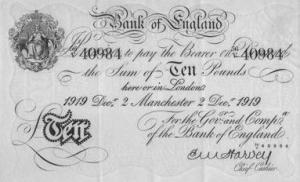 Bank of England
40984 to pay the Bearer on 40984
the Sum of Ten Pounds
here or in London
1919 Dec. 2 Manchester 2 Dec. 1919
For the Gov.r and Comp.a
of the Bank of England
£ Ten
Chief Cashier